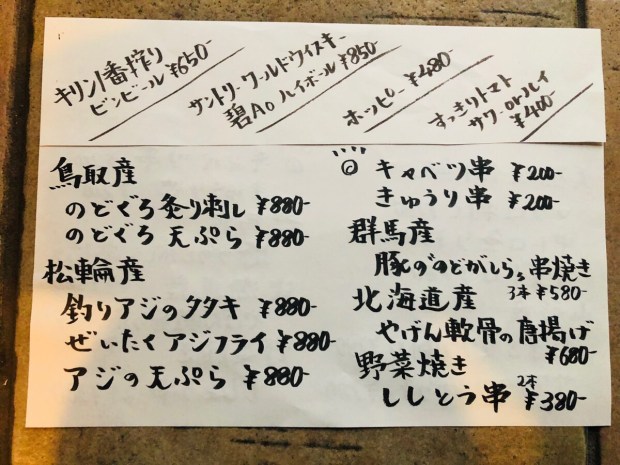 キリン一番搾り
ビンビール ¥650-
サントリーワールドウイスキー
碧Ao ハイボール ¥850-
ホッピー ¥480-
すっきりトマト
サワーorハイ
¥400-
鳥取産
のどぐろ炙り刺し ¥880-
のどぐろ 天ぷら ¥880-
松輪産
釣りアジのタタキ ¥880-
ぜいたくアジフライ ¥880-
アジの天ぷら ¥880-
◎ キャベツ串 ¥200-
きゅうり串 ¥200-
群馬産
豚の"のどがしら"串焼き
3本 ¥580-
北海道産
やげん軟骨の唐揚げ
¥680-
野菜焼き
ししとう串 2本 ¥380-